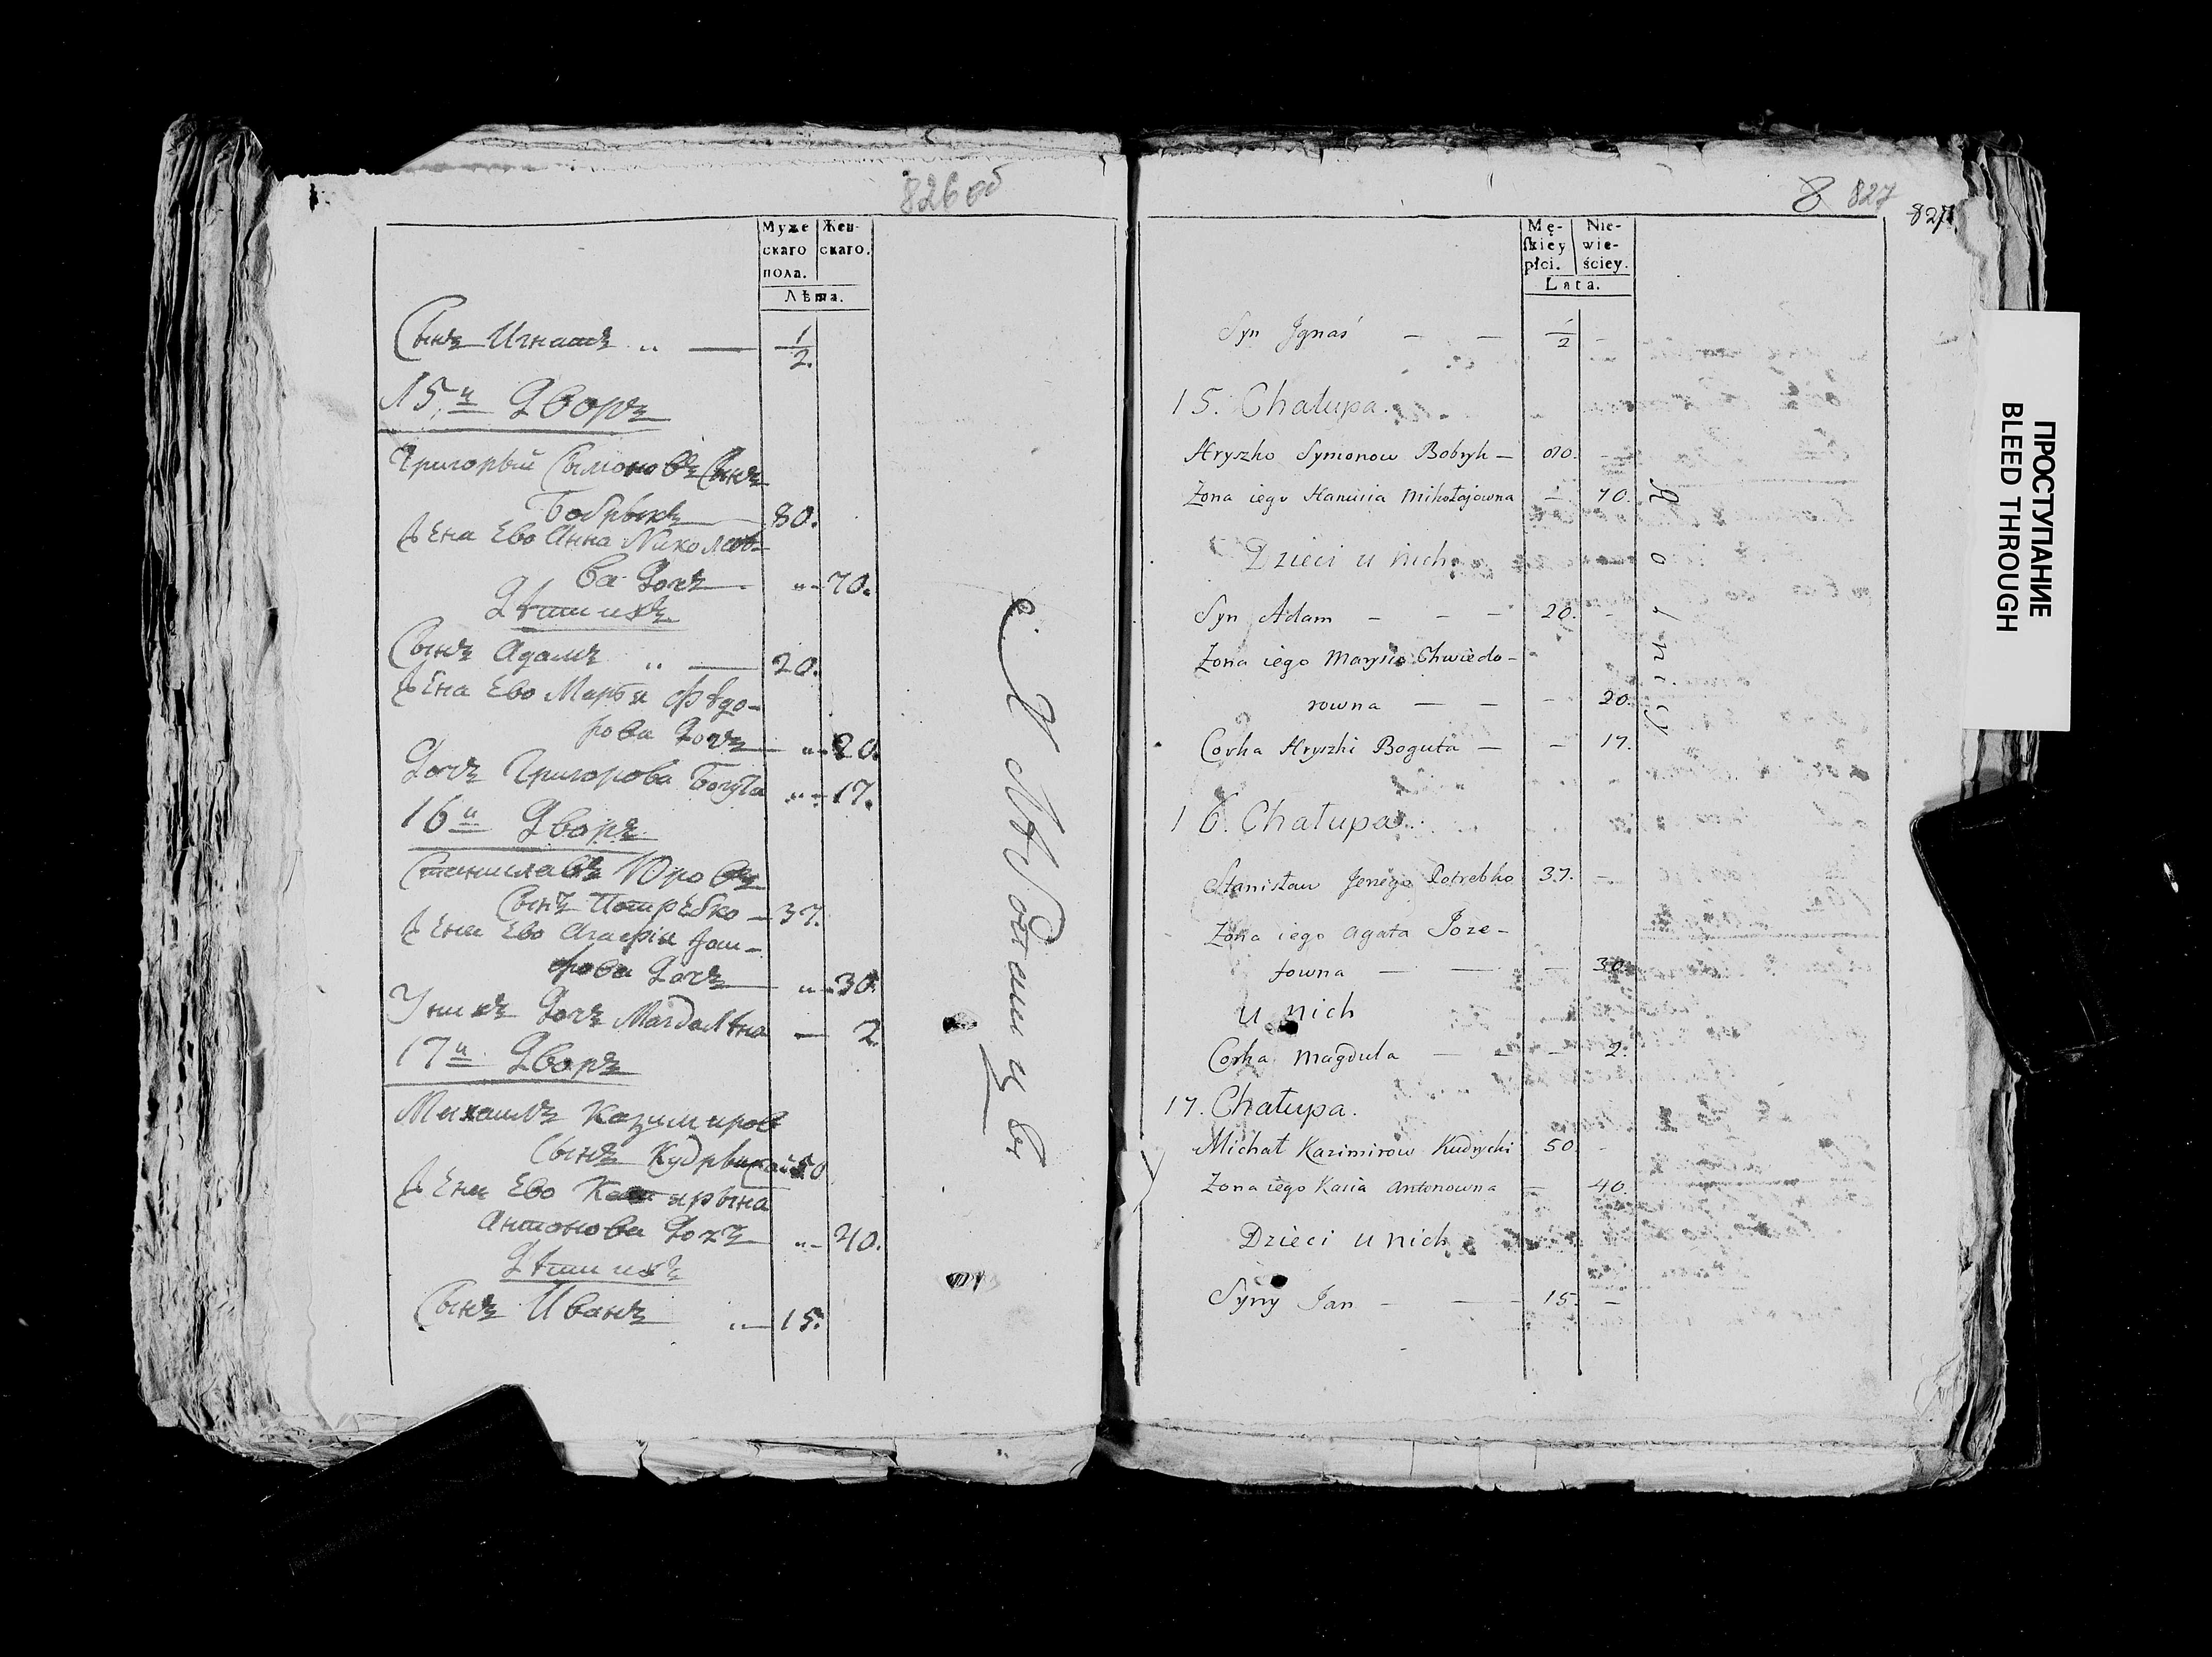 826 об
Муже
скаго
пола.
Жен-
скаго.
Лѣта.
Сынъ Игнатъ „ — 1/2.
15й Дворъ
Григорый Сымоновъ Сынъ
Бобрыкъ — 80.
Жена Ево Анна Николае-
ва Дочъ — „ - 70.
Дѣти ихъ
Сынъ Адамъ „ — 20.
Жена Ево Марья Фѣдо-
рова Дочъ — „ - 20.
Дочъ Григорова Богута „ - 17.
16й Дворъ
Станиславъ Юровъ
Сынъ Потребко — 37.
Жена Ево Агафія
Дочъ — „ - 30.
У нихъ Дочъ Магдалѣна — 2
17й Дворъ
Михаилъ Казимиров
Сынъ Кудрыцкой 50
Жена Ево Катярына
Антонова Дочъ „ - 40.
Дѣти ихъ
Сынъ Иванъ „ — 15.
8 827
827
Mę-
skiey
płci.
Nie-
wie-
ściey.
Lata.
Syn Jgnaś — — 1/2 -
15. Chałupa.
Hryszko Symonow Bobryk — 80. -
Zona iego Hanusia Mikołajowna — 70.
Dzieci u nich
Syn Adam - - - 20. -
Zona iego Marysia Chwiedo-
rowna — — - 20.
Corka Hryszki Boguta — - 17.
16. Chałupa.
Stanisław Jerzego Potrebko 37. -
Zona iego Agata Joze-
fowna — — - 30.
u nich
Corka Magdula — - - 2.
17. Chałupa.
Michał Kazimirow Kudrycki 50. -
Zona iego Kasia Antonowna — 40.
Dzieci u nich
Syny Jan - — 15. -
Rolnicy
ПРОСТУПАНИЕ
BLEED THROUGH